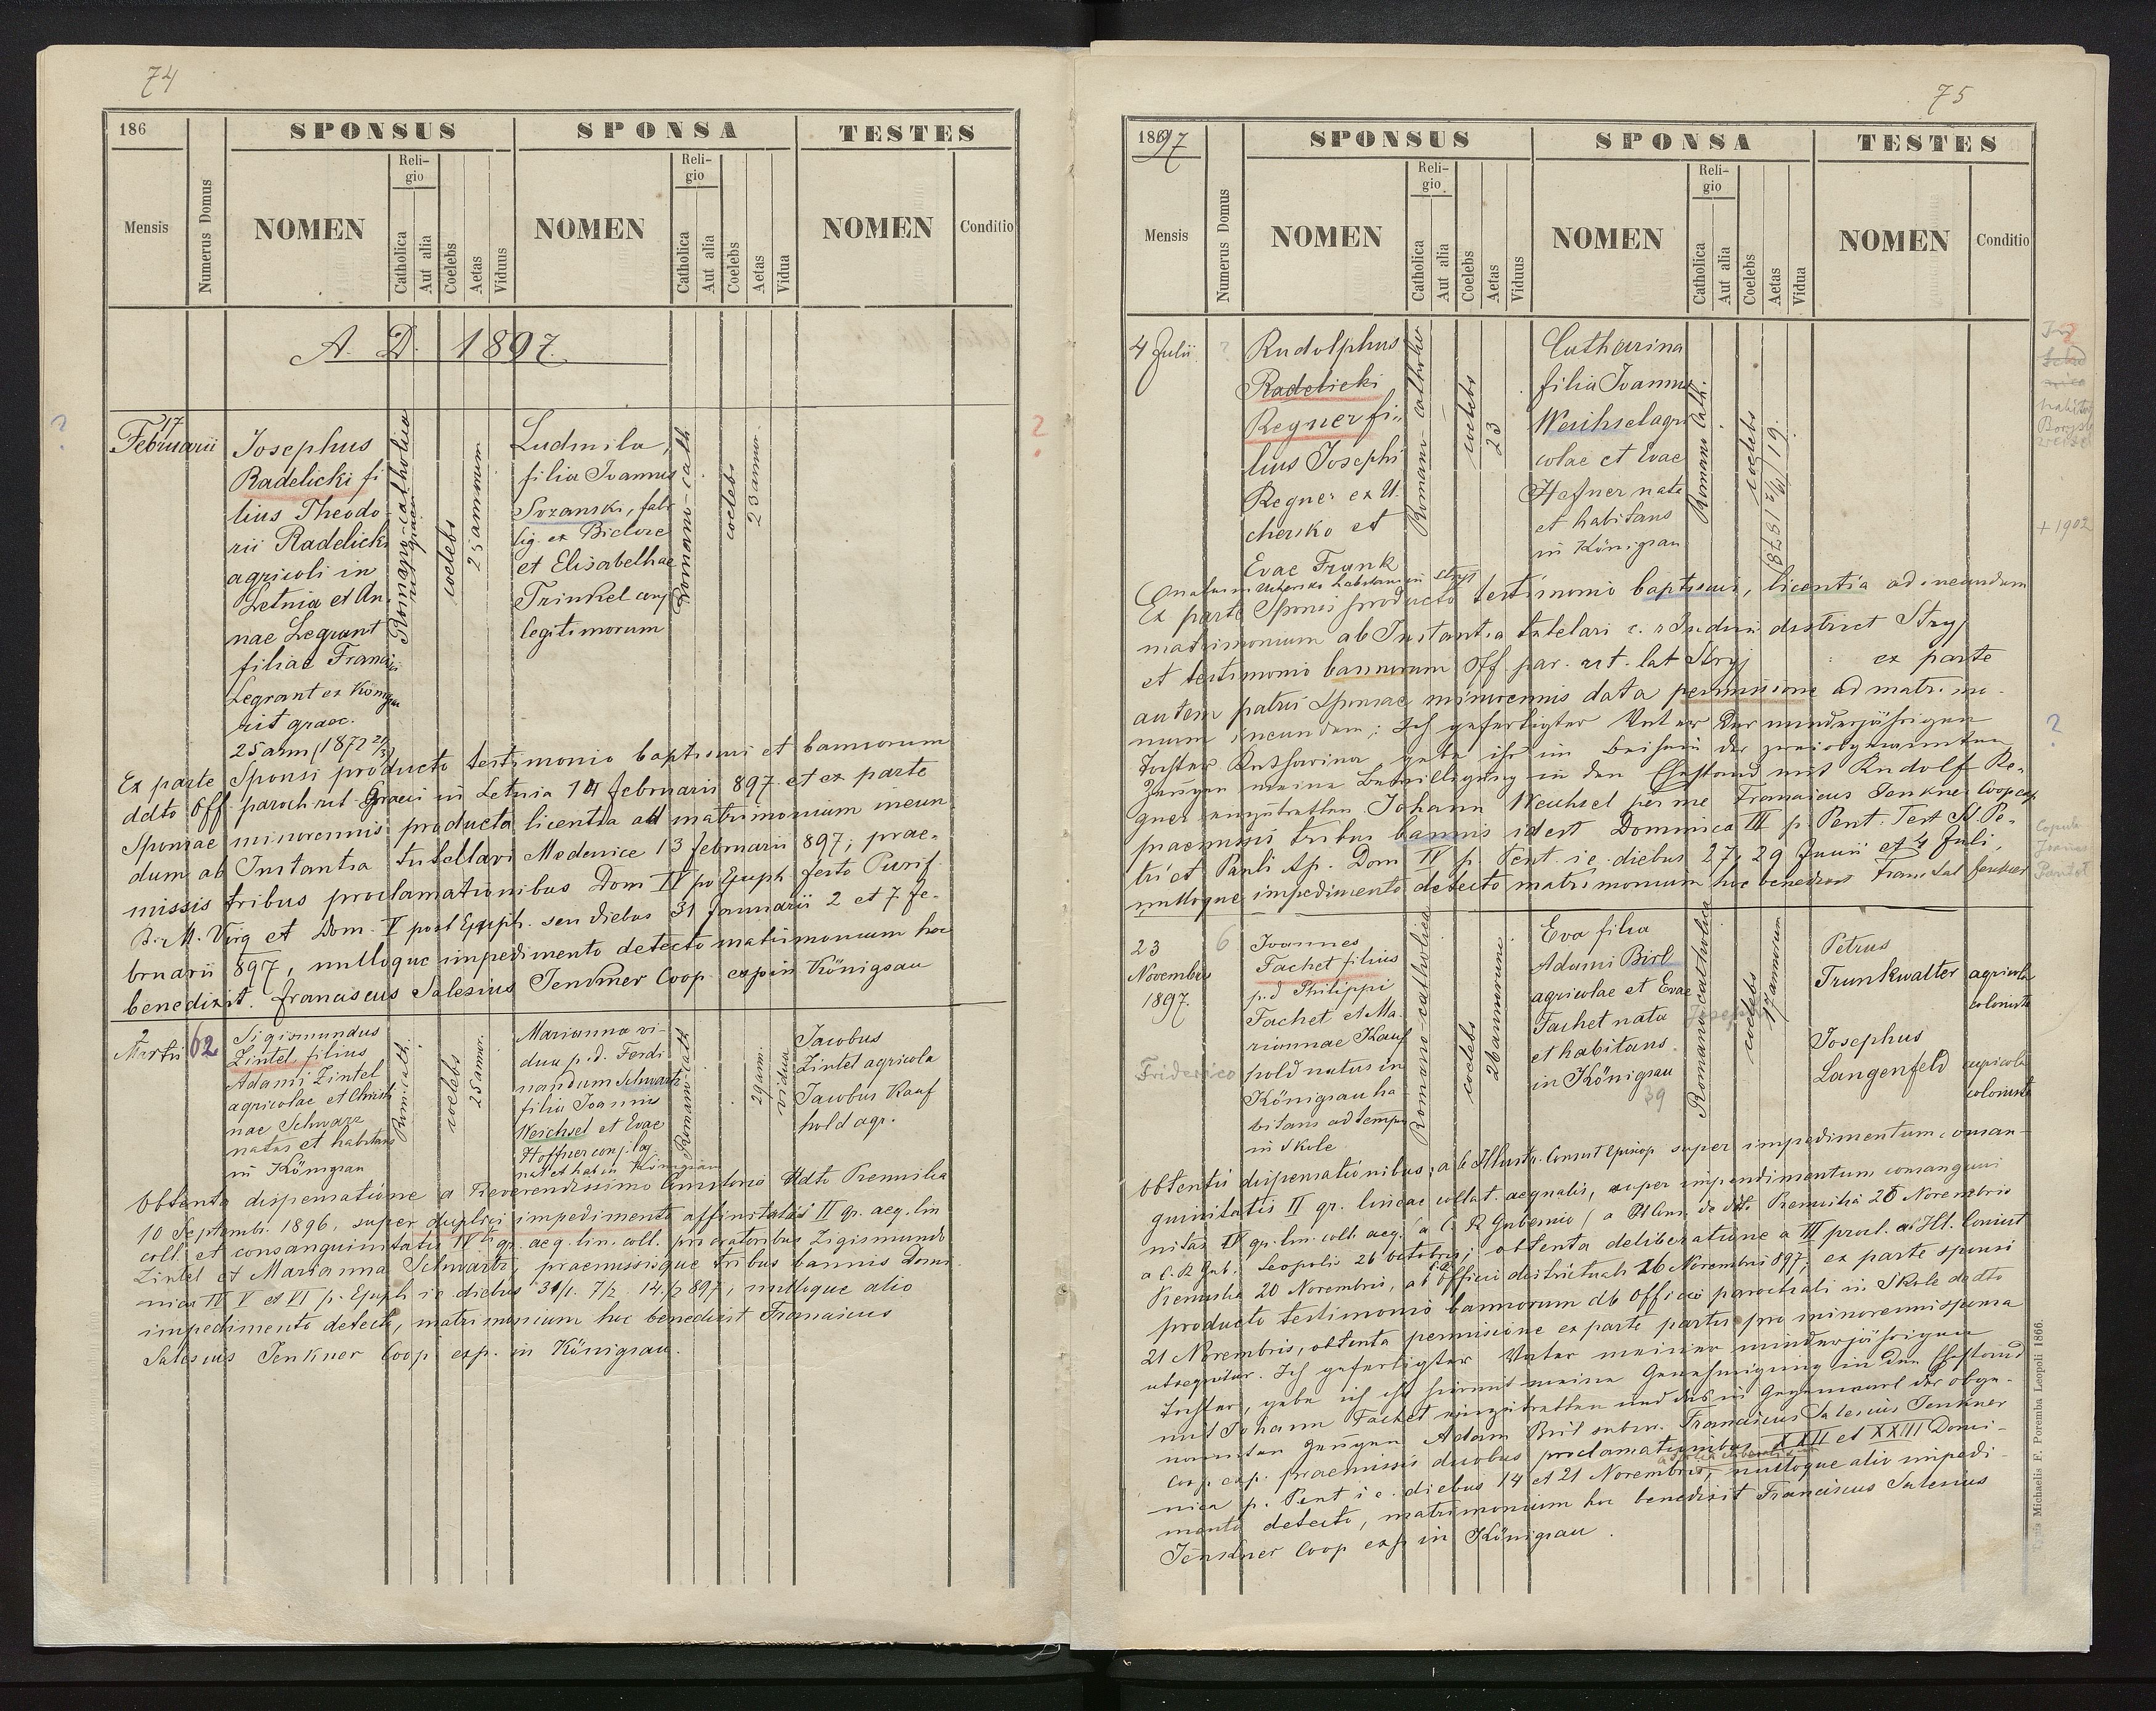 74
186
SPONSUS
SPONSA
TESTES
Mensis
Numerus Domus
NOMEN
Religio
Catholica
Aut alia
Coelebs
Aetas
Viduus
NOMEN
Religio
Catholica
Aut alia
Coelebs
Aetas
Vidua
NOMEN
Conditio
A. D. 1897.
17
Februarii
Josephus
Radelicki fi
lius Theodo
rii Radelicki
agricoli in
Letnia et An
nae Legrant
filiae Francisci
Legrant ex Königsau
rit graec.
25 ann (1872 21/3)
Romano-catholica
rit graeci
coelebs
25 annorum
Ludmila,
filia Joannis
Sozanski, fab
lig ex
et Elisabethae
Trinkel conj
legitimorum
Romano-cath
coelebs
23 annor.
Ex parte Sponsi producto testimonio baptismi et bannorum
ddto Off paroch rit. Graeci in Letnia 14 februarii 897. et ex parte
Sponsae minorennis producta licentia ad matrimonium ineun
dum ab Instantia tutellari Medenice 13 februarii 897; prae-
missis tribus proclamationibus Dom IV po Epiph festo Purif.
B. M. Virg et Dom. V post Epiph. seu diebus 31 Januarii 2 et 7 fe-
bruarii 897, nulloque impedimento detecto matrimonium hoc
benedixit. Franciscus Salesius Jenkner Coop exp in Königsau
2
Martii
62
Sigismundus
Zintel filius
Adami Zintel
agricolae et Christi
nae Schwarz
natus et habitans
in Königsau
Rom. cath.
coelebs
25 annor.
Marianna vi-
dua p.d. Ferdi
nandum Schwartz
filia Joannis
Weichsel et Evae
Hoffner conj. leg
nat et hab in Königsau
Romano cath
29 ann.
vidua
Jacobus
Zintel agricola
Jacobus Kauf
hold agr.
Obtenta dispensatione a Reverendissimo Consistorio ddto Premilia
10 Septembr. 1896. super duplici impedimento affinitatis II gr. aeq. lin
coll. et consanguinitatis IV gr. aeq. lin. coll. pro oratoribus Zigismundo
Zintel et Marianna Schwartz, praemissisque tribus bannis Domi
nica IV V et VI p. Epiph ie diebus 31/1. 7/2. 14/2 897, nulloque alio
impedimento detecto, matrimonium hoc benedixit Franciscus
Salesius Jenkner Coop. exp. in Königsau.
75
1897
SPONSUS
SPONSA
TESTES
Mensis
Numerus Domus
NOMEN
Religio
Catholica
Aut alia
Coelebs
Aetas
Viduus
NOMEN
Religio
Catholica
Aut alia
Coelebs
Aetas
Vidua
NOMEN
Conditio
4 Julii
?
Rudolphus
Radelicki
Regner fi-
lius Josephi
Regner ex U.
chersko et
Evae Frank
natus in Uchersko habitans in Stryj
Romano-catholica
coelebs
23
Catharina
filia Joannis
Weichsel agri
colae et Evae
Hafner nata
et habitans
in Königsau
Romano Cath.
coelebs
19.
+ 1902
Ex parte Sponsi producto testimonio baptismi, licentia ad ineundum
matrimonium ab Instantia tutelari c. r Judicii district Stryj
et testimonio bannorum Off. par. rit. lat Stryj ex parte
autem patris sponsae minorennis data permissione ad matrimo-
nium ineundum; Ich gefertigter Vater der minderjährigen
Tochter Katharina gebe ihr im Beisein der zwei
Zeugen meine Bewilligung in den Ehestand mit Rudolf Re-
gner einzutretten Johann Weichsel per me Franciscus Jenkner Coop exp
praemissis tribus bannis idest Dominica III p. Pent. Fest SS. Pe-
tri et Pauli Ap. Dom IV p. Pent. i.e. diebus 27, 29 Junii et 4 Juli,
nulloque impedimento detecto matrimonium hoc benedixit Fran Sal Jenkner
23
Novembris
1897.
6
Friderico
Joannes
Fachet filius
p.d Philippi
Fachet et Ma-
riannae Kauf
hold natus in
Königsau ha-
bitans ad tempus
in Skole
Romano-catholica
coelebs
26 annorum.
Eva filia
Adami Birl
agricolae et Evae
Fachet nata
et habitans
in Königsau
39
Romano catholica
coelebs
17 annorum
Petrus
Trunkwalter
agricola
colonista
Josephus
Langenfeld
agricola
colonista
Obtentis dispensationibus, ab Illustr. Consist Episcop super impedimentum consan-
guinitatis II gr. lineae collat. aequalis, super impendimentum consangui
nitas IV gr. lin. coll. aeq. (a C. R Gubernio / a Ill Cons. de dto Premislia 20 Novembris
a C. R Gub. Leopolis 26 Octobris; obtenta deliberatione a III procl. ab Ill. Consist
Premislia 20 Novembris, ab Officii districtuali 16 Novembris 897, ex parte sponsi
producto testimonio bannorum ab Officio parochiali in Skole de dto
21 Novembris, obtenta permissione ex parte patris pro minorenni sponsa
utsequitur. Ich gefertigter Vater meiner minderjährigen
Tochter, gebe ich ihr hiermit meine Genehmigung in den Ehestand
mit Johann Fachet einzutretten und das in Gegenwart der obge-
nannten Zeugen Adam Birl subscr. Franciscus Salesius Jenkner
Coop. exp. praemissis duobus proclamationibus XXII et XXIII Domi-
nica p. Pent i e. diebus 14 et 21 Novembris, nulloque alio impedi-
mento detecto, matrimonium hoc benedixit Franciscus Salesius
Jenkner Coop exp in Königsau.
Michaelis F. Poremba Leopoli 1866.